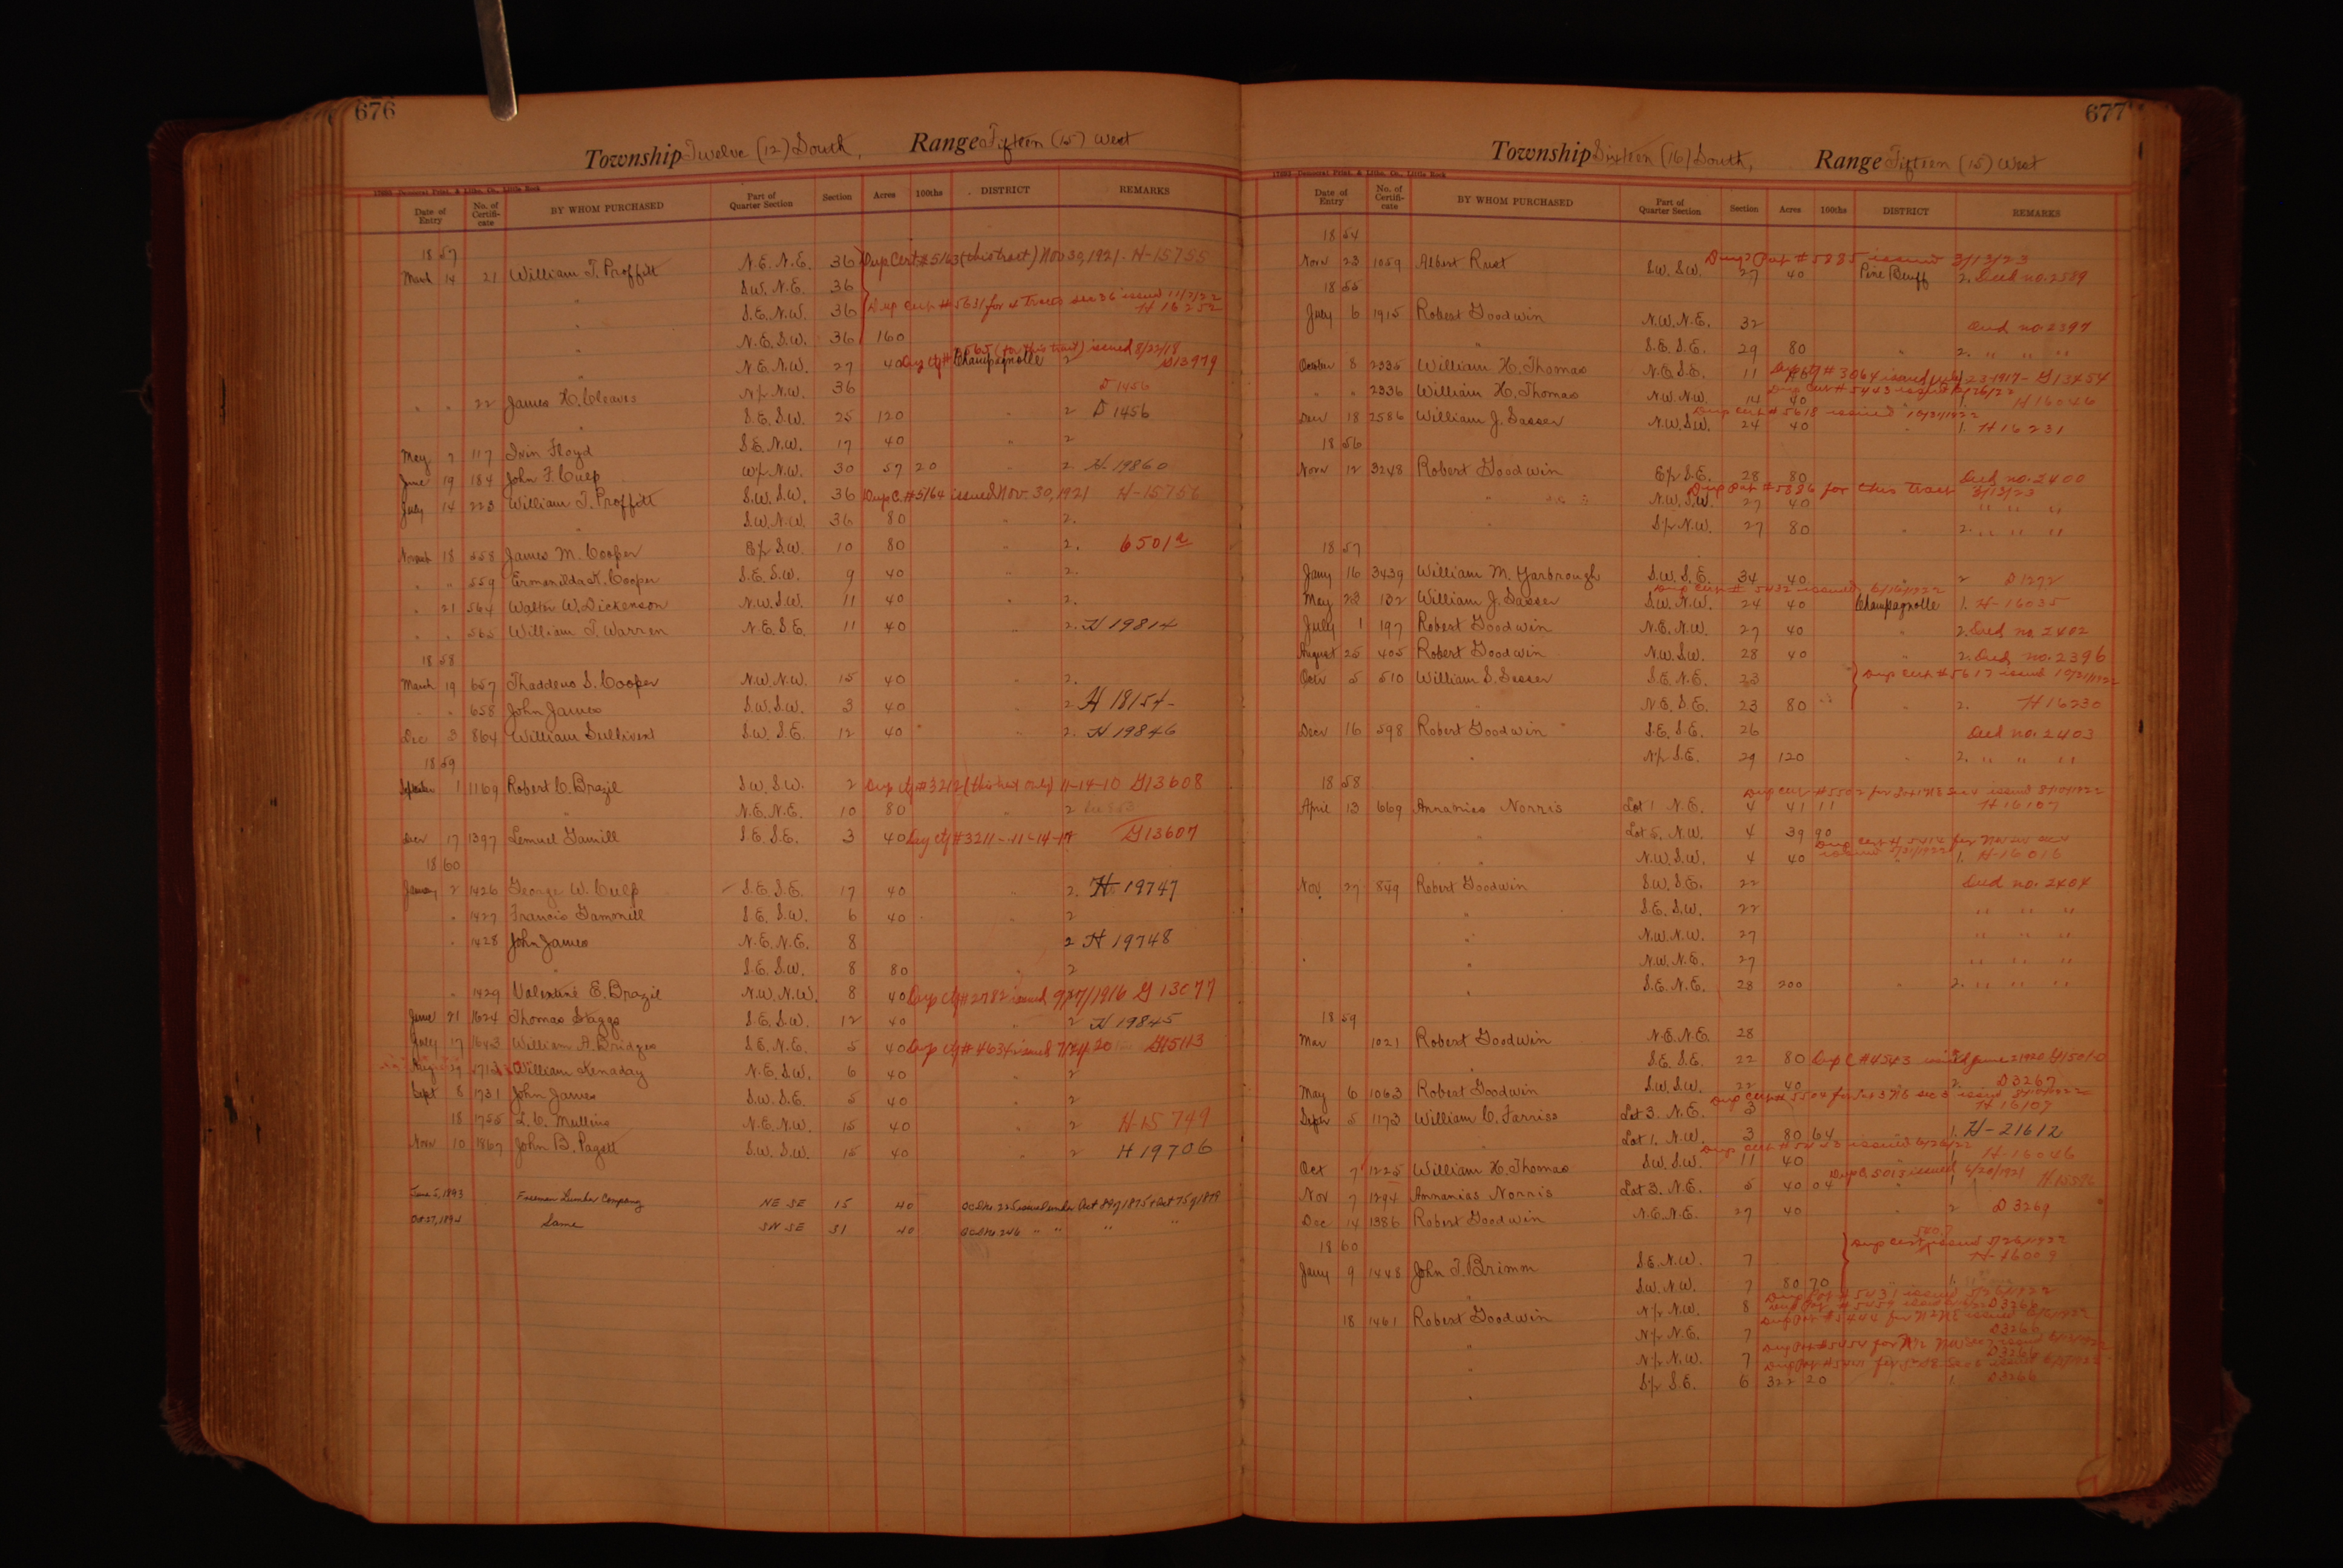 676
Township Twelve (12) South, Range Fifteen (15) West
17693 Democrat Print. & Litho. Co., Little Rock
Date of Entry No. of Certifi-cate BY WHOM PURCHASED Part of Quarter Section Section Acres 100ths DISTRICT REMARKS
1857
March 14 21 William T. Proffitt N.E. N.E. 36 Dup Cert #5163 (this tract) Nov 30, 1921. H-15755
" S.W. N.E. 36
" S.E. N.W. 36 Dup Cert #5631 for 4 Tracts sec 36 issued 11/2/22 H 16252
" N.E. S.W. 36 160
" N.E. N.W. 27 40 (for this tract) issued 8/22/18 Champagnolle 2 G13979
" " 22 James H. Cleaves N/2 N.W. 36 D 1456
" S.E. S.W. 25 120 " 2 D 1456
May 2 117 Ixin Floyd S.E. N.W. 17 40 " 2
June 19 184 John F. Culp W/2 N.W. 30 57 20 " 2. H. 19860
July 14 223 William T. Proffitt S.W. S.W. 36 Dup C. #5164 issued Nov. 30, 1921 H-15756
S.W. N.W. 36 80 " 2.
Novemb 18 558 James M. Cooper E/2 S.W. 10 80 " 2. 6501
" " 559 Ermanilda K. Cooper S.E. S.W. 9 40 " 2.
" 21 564 Walter W. Dickenson N.W. S.W. 11 40 " 2.
" " 565 William T. Warren N.E. S.E. 11 40 " 2. H 19814
1858
March 19 657 Thaddeus S. Cooper N.W. N.W. 15 40 " 2.
" " 658 John James S.W. S.W. 3 40 " 2. H 18154
Dec 3 864 William Sullivent S.W. S.E. 12 40 " 2. H 19846
1859
September 1 1169 Robert C. Brazil S.W. S.W. 2 Dup Ctf #3212 (this text only) 11-14-10 G13608
" N.E. N.E. 10 80 2
Decr 17 1397 Lemuel Gamill S.E. S.E. 3 40 Dup ctf #3211 - 11-14-17 G13607
1860
January 2 1426 George W. Culp S.E. S.E. 17 40 " 2. H 19747
" 1427 Francis Gammill S.E. S.W. 6 40 " 2
" 1428 John James N.E. N.E. 8 2 H 19748
" S.E. S.W. 8 80 " 2
" 1429 Valentine E. Brazil N.W. N.W. 8 40 Dup Ctf #2782 issued 9/27/1916 G 13077
June 21 1624 Thomas Staggs S.E. S.W. 12 40 " 2 H 19845
July 17 1643 William A. Bridges S.E. N.E. 5 40 Dup ctf #4634 issued 7/21/20 G15113
Aug 29 1712 William Kenaday N.E. S.W. 6 40 " 2
Sept 8 1731 John James S.W. S.E. 5 40 " 2
18 1755 L. C. Mullins N.E. N.W. 15 40 " 2 H-15749
Novr 10 1867 John B. Pagett S.W. S.W. 15 40 " 2 H 19706
June 5, 1893 Freeman Lumber Company NE SE 15 40
Oct 27, 1894 Same SW SE 31 40 " " " "
677
Township Sixteen (16) South, Range Fifteen (15) West
17693 Democrat Print. & Litho. Co., Little Rock
Date of Entry No. of Certifi-cate BY WHOM PURCHASED Part of Quarter Section Section Acres 100ths DISTRICT REMARKS
1854
Dup Pat #5885 issued 3/13/23
Novr 23 1059 Albert Rust S.W. S.W. 27 40 Pine Bluff 2. Deed no. 2589
1855
July 6 1915 Robert Goodwin N.W. N.E. 32 Deed no. 2397
" S.E. S.E. 29 80 " 2. " " "
October 8 2335 William H. Thomas N.E. S.E. 11 #3064 issued July 23-1917 - G13454
Dup Cert #5443 issued 6/26/22
" " 2336 William H. Thomas N.W. N.W. 14 40 1. H16046
Dup Cert #5618 issued 10/31/1922
Decr 18 2586 William J. Sasser N.W. S.W. 24 40 " 1. H 16231
1856
Novr 12 3248 Robert Goodwin E/2 S.E. 28 80 Deed no. 2400
Dup Pat #5886 for this Tract 3/13/23
" N.W. S.W. 27 40 " " "
" S/2 N.W. 27 80 " 2. " " "
1857
Jany 16 3439 William M. Yarbrough S.W. S.E. 34 40 " 2 D1272
Dup Cert # 5432 issued 6/16/1922
May 23 132 William J. Sasser S.W. N.W. 24 40 Champagnolle 1. H-16035
July 1 197 Robert Goodwin N.E. N.W. 27 40 " 2. Deed no. 2402
August 25 405 Robert Goodwin N.W. S.W. 28 40 " 2. Deed no. 2396
Octr 5 510 William S. Sasser S.E. N.E. 23 Dup Cert #5617 issued 10/31/1922
" N.E. S.E. 23 80 " 2. H16230
Decr 16 598 Robert Goodwin S.E. S.E. 26 Deed no. 2403
" N/2 S.E. 29 120 " 2. " " "
1858
Dup Cert #5502 for Lot 1 NE Sec 4 issued 8/10/1922
April 13 669 Annanias Norris Lot 1 N.E. 4 41 11 H16107
" Lot 5. N.W. 4 39 90
" N.W. S.W. 4 40 1. H-16016
Nov. 27 849 Robert Goodwin S.W. S.E. 22 Deed no. 2404
" S.E. S.W. 22 " " "
" N.W. N.W. 27 " " "
" N.W. N.E. 27 " " "
" S.E. N.E. 28 200 " 2. " " "
1859
Mar 1021 Robert Goodwin N.E. N.E. 28
" S.E. S.E. 22 80 Dup C #4543 issued June 2 1920 G15010
May 6 1063 Robert Goodwin S.W. S.W. 22 40 2. D3267
Septr 5 1173 William C. Farriss Lot 3. N.E. 3 H 16107
" Lot 1. N.W. 3 80 64 1. H-21612
Oct 7 1225 William H. Thomas S.W. S.W. 11 40 1. H-16046
Dup C. 5013 issued 6/20/1921
Nov 7 1294 Annanias Norris Lot 3. N.E. 5 40 04 1 H15586
Dec 14 1386 Robert Goodwin N.E. N.E. 27 40 " 2 D 3269
1860
Dup Cert issued 5/26/1922
Jany 9 1448 John T. Brimm S.E. N.W. 7 H-16009
" S.W. N.W. 7 80 70 1.
18 1461 Robert Goodwin N/2 N.W. 8
" N/2 N.E. 7 D3266
" N/2 N.W. 7 D3266
" S/2 S.E. 6 322 20 " 1. D3266